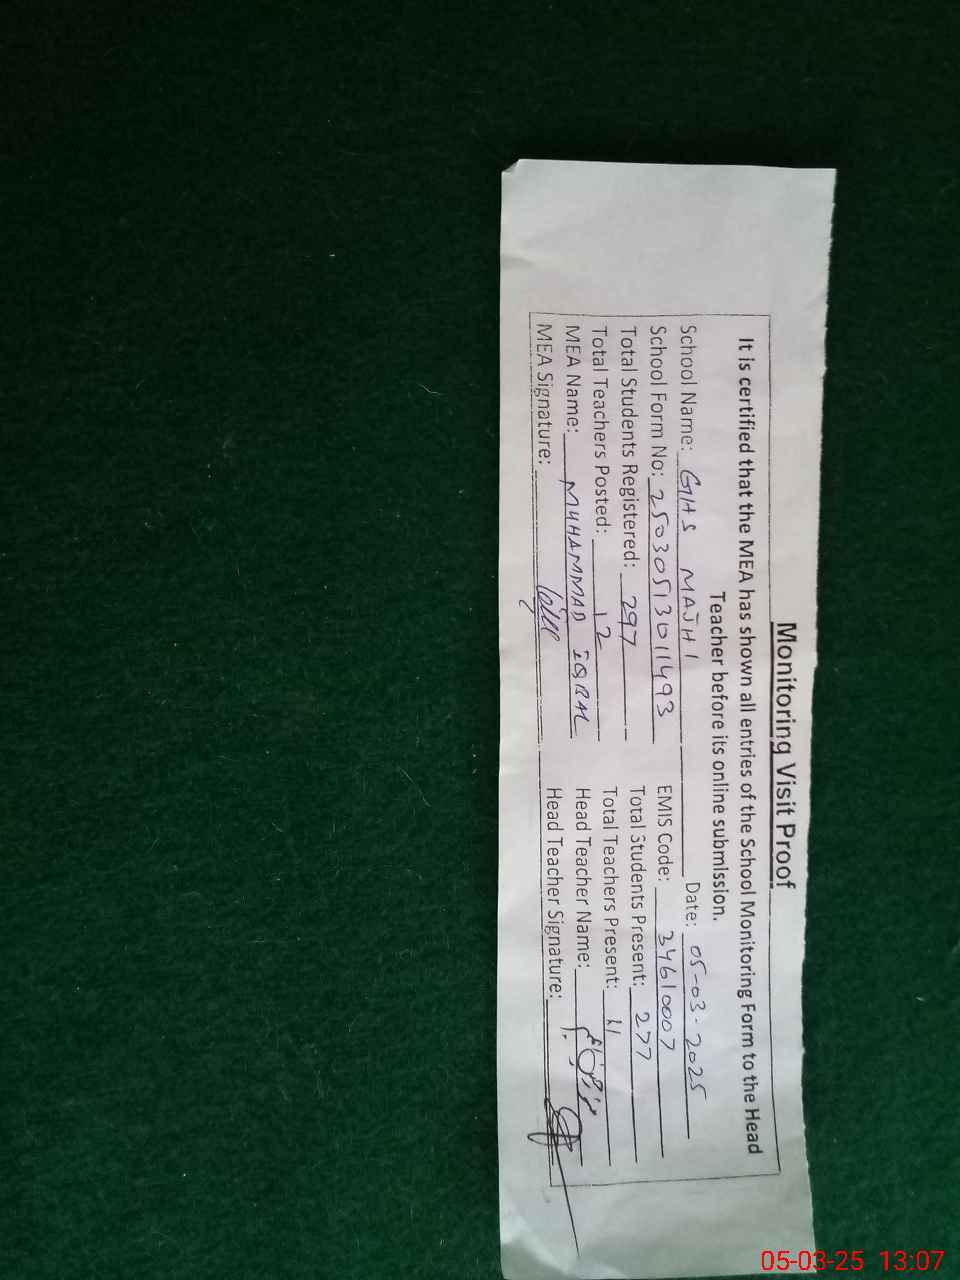 Monitoring Visit Proof
It is certified that the MEA has shown all entries of the School Monitoring Form to the Head
Teacher before its online submission.
School Name: GHS MAJHI Date: 05-03-2025
School Form No: 2503051301493 EMIS Code: 34610007
Total Students Registered: 297 Total Students Present: 277
Total Teachers Posted: 12 Total Teachers Present: 11
MEA Name: MUHAMMAD IQBAL Head Teacher Name:
MEA Signature: Head Teacher Signature:
05-03-25 13:07